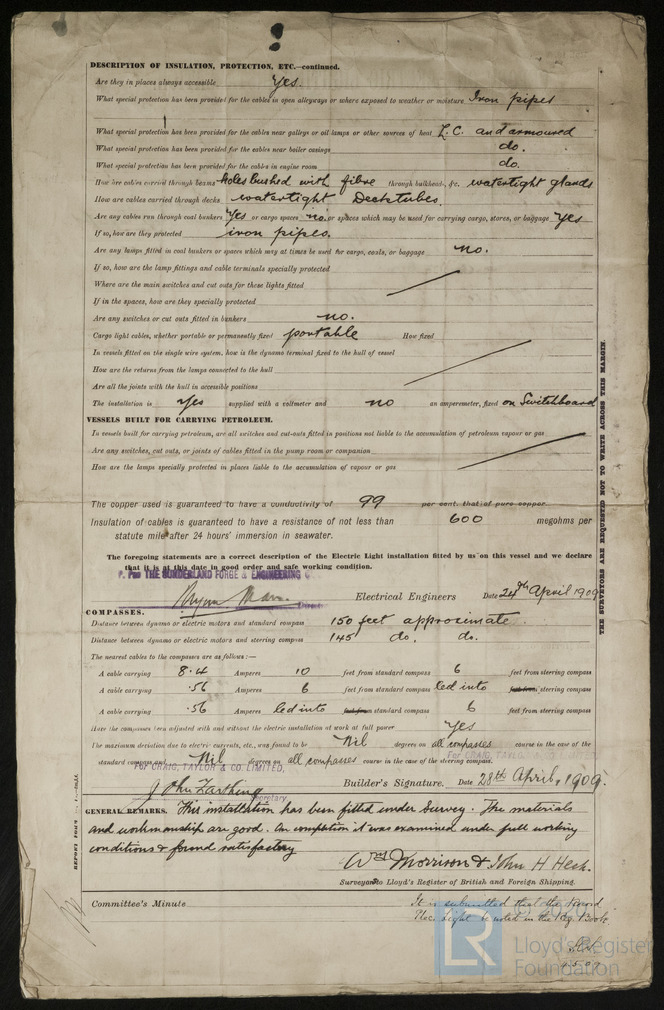 DESCRIPTION OF INSULATION, PROTECTION, ETC.—continued.
Are they in places always accessible Yes.
What special protection has been provided for the cables in open alleyways or where exposed to weather or moisture Iron pipes
What special protection has been provided for the cables near galleys or oil lamps or other sources of heat L.C. and armoured
What special protection has been provided for the cables near boiler casings do.
What special protection has been provided for the cables in engine room do.
How are cables carried through beams Holes bushed with fibre through bulkheads, &c. watertight glands
How are cables carried through decks watertight Deck tubes.
Are any cables run through coal bunkers Yes or cargo spaces no. or spaces which may be used for carrying cargo, stores, or baggage Yes
If so, how are they protected iron pipes.
Are any lamps fitted in coal bunkers or spaces which may at times be used for cargo, coals, or baggage no.
If so, how are the lamp fittings and cable terminals specially protected
Where are the main switches and cut outs for these lights fitted
If in the spaces, how are they specially protected
Are any switches or cut outs fitted in bunkers no.
Cargo light cables, whether portable or permanently fixed portable How fixed
In vessels fitted on the single wire system, how is the dynamo terminal fixed to the hull of vessel
How are the returns from the lamps connected to the hull
Are all the joints with the hull in accessible positions
The installation is Yes supplied with a voltmeter and no an amperemeter, fixed on Switchboard
VESSELS BUILT FOR CARRYING PETROLEUM.
In vessels built for carrying petroleum, are all switches and cut-outs fitted in positions not liable to the accumulation of petroleum vapour or gas
Are any switches, cut outs, or joints of cables fitted in the pump room or companion
How are the lamps specially protected in places liable to the accumulation of vapour or gas
The copper used is guaranteed to have a conductivity of 99 per cent. that of pure copper.
Insulation of cables is guaranteed to have a resistance of not less than 600 megohms per
statute mile after 24 hours' immersion in seawater.
The foregoing statements are a correct description of the Electric Light installation fitted by us on this vessel and we declare
that it is at this date in good order and safe working condition.
P. Pro THE SUNDERLAND FORGE & ENGINEERING
Electrical Engineers Date 24th April 1909
COMPASSES.
Distance between dynamo or electric motors and standard compass 150 feet approximate
Distance between dynamo or electric motors and steering compass 145 do. do.
The nearest cables to the compasses are as follows:—
A cable carrying 8.4 Amperes 10 feet from standard compass 6 feet from steering compass
A cable carrying .56 Amperes 6 feet from standard compass led into feet from steering compass
A cable carrying .56 Amperes led into feet from standard compass 6 feet from steering compass
Have the compasses been adjusted with and without the electric installation at work at full power Yes
The maximum deviation due to electric currents, etc., was found to be Nil degrees on all compasses course in the case of the
standard compass and Nil degrees on all compasses course in the case of the steering compass.
For CRAIG, TAYLOR & CO. LIMITED,
Secretary Builder's Signature. Date 28th April, 1909.
GENERAL REMARKS. This installation has been fitted under Survey. The materials
and workmanship are good. On completion it was examined under full working
conditions & found satisfactory
Wm Morrison & John H Heck.
Surveyors to Lloyd's Register of British and Foreign Shipping.
Committee's Minute It is submitted that the Record
Elec. Light be noted in the Reg. Book.
4.5.09
THE SURVEYORS ARE REQUESTED NOT TO WRITE ACROSS THIS MARGIN.
LR Lloyd's Register
Foundation